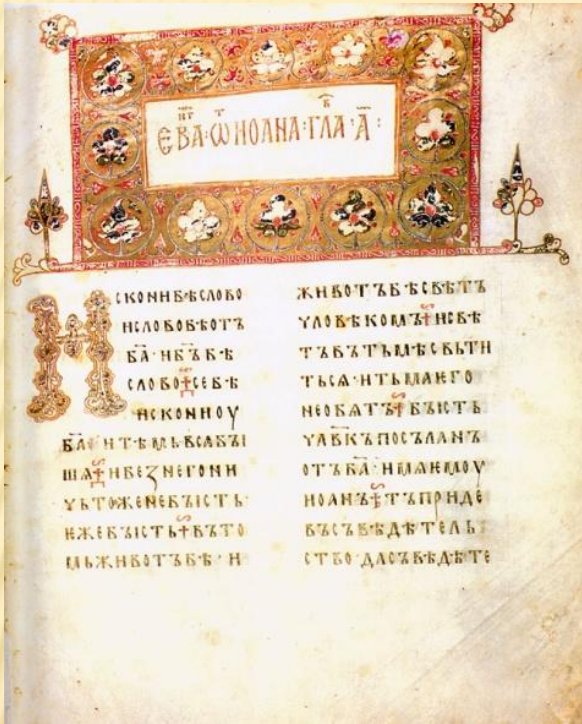 ЄВА · Ѿ ИОАНА · ГЛА · А҃ :
ИСКОНИБѢСЛОВО
ИСЛОВОБѢОТЪ
БА҃ · ИБЪ҃БѢ
СЛОВО · СЕБѢ
ИСКОНИОУ
БА҃ · ИТѢМЬВСАБЫ
ША · ИБЕЗНЕГОНИ
ЧЬТОЖЕНЕБЫСТЬ ·
ЕЖЕБЫСТЬ · ВЪТО
МЬЖИВОТЪБѢ · И
ЖИВОТЪБѢСВѢТЪ
ЧЛОВѢКОМЪ · ИСВѢ
ТЪВЪТЬМѢСВЬТИ
ТЬСѦ · ИТЬМАЕГО
НЕОБѦТЪ · БЫСТЬ
ЧЛ҃ВКЪПОСЪЛАНЪ
ОТЪБА҃ · ИМѦЕМОУ
ИОАНЪ · ТЪПРИДЕ
ВЪСЪВѢДѢТЕЛЬ
СТВО · ДАСЪВѢДѢТЕ